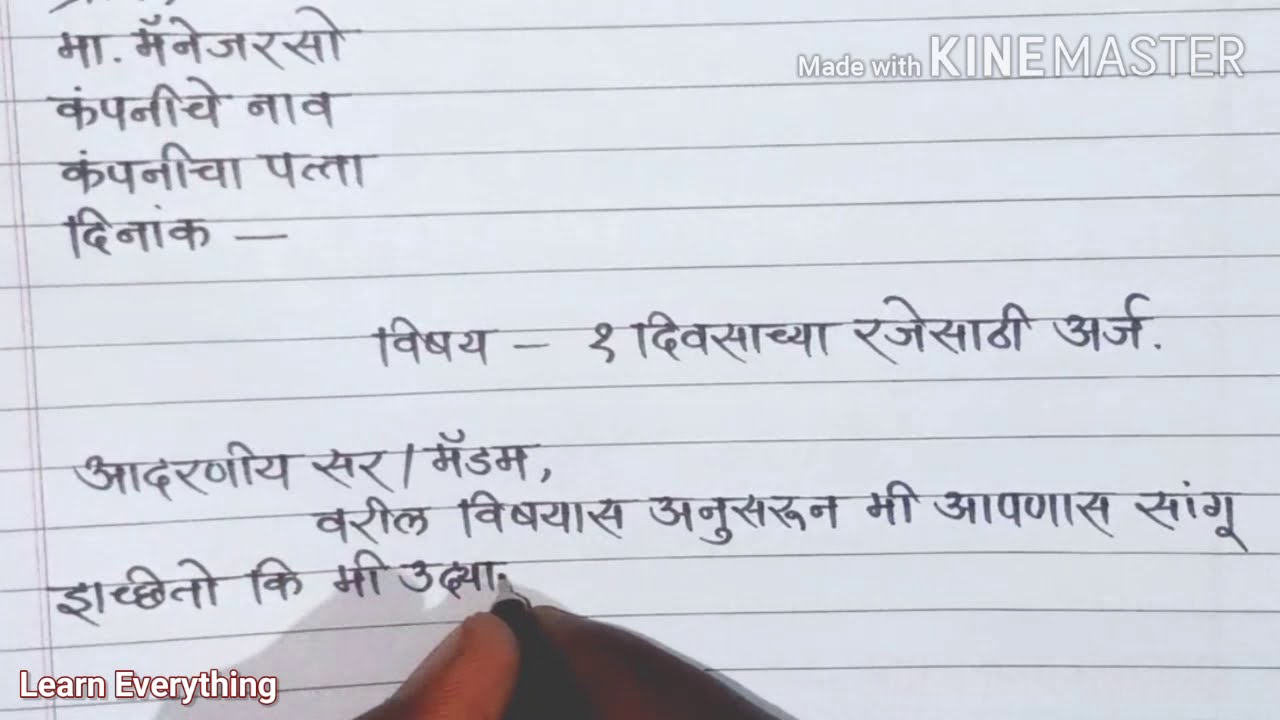 मा. मॅनेजरसो
Made with KINEMASTER
कंपनीचे नाव
कंपनीचा पत्ता
दिनांक —
विषय – १ दिवसाच्या रजेसाठी अर्ज.
आदरणीय सर / मॅडम,
वरील विषयास अनुसरून मी आपणास सांगू
इच्छितो कि मी उद्या
Learn Everything